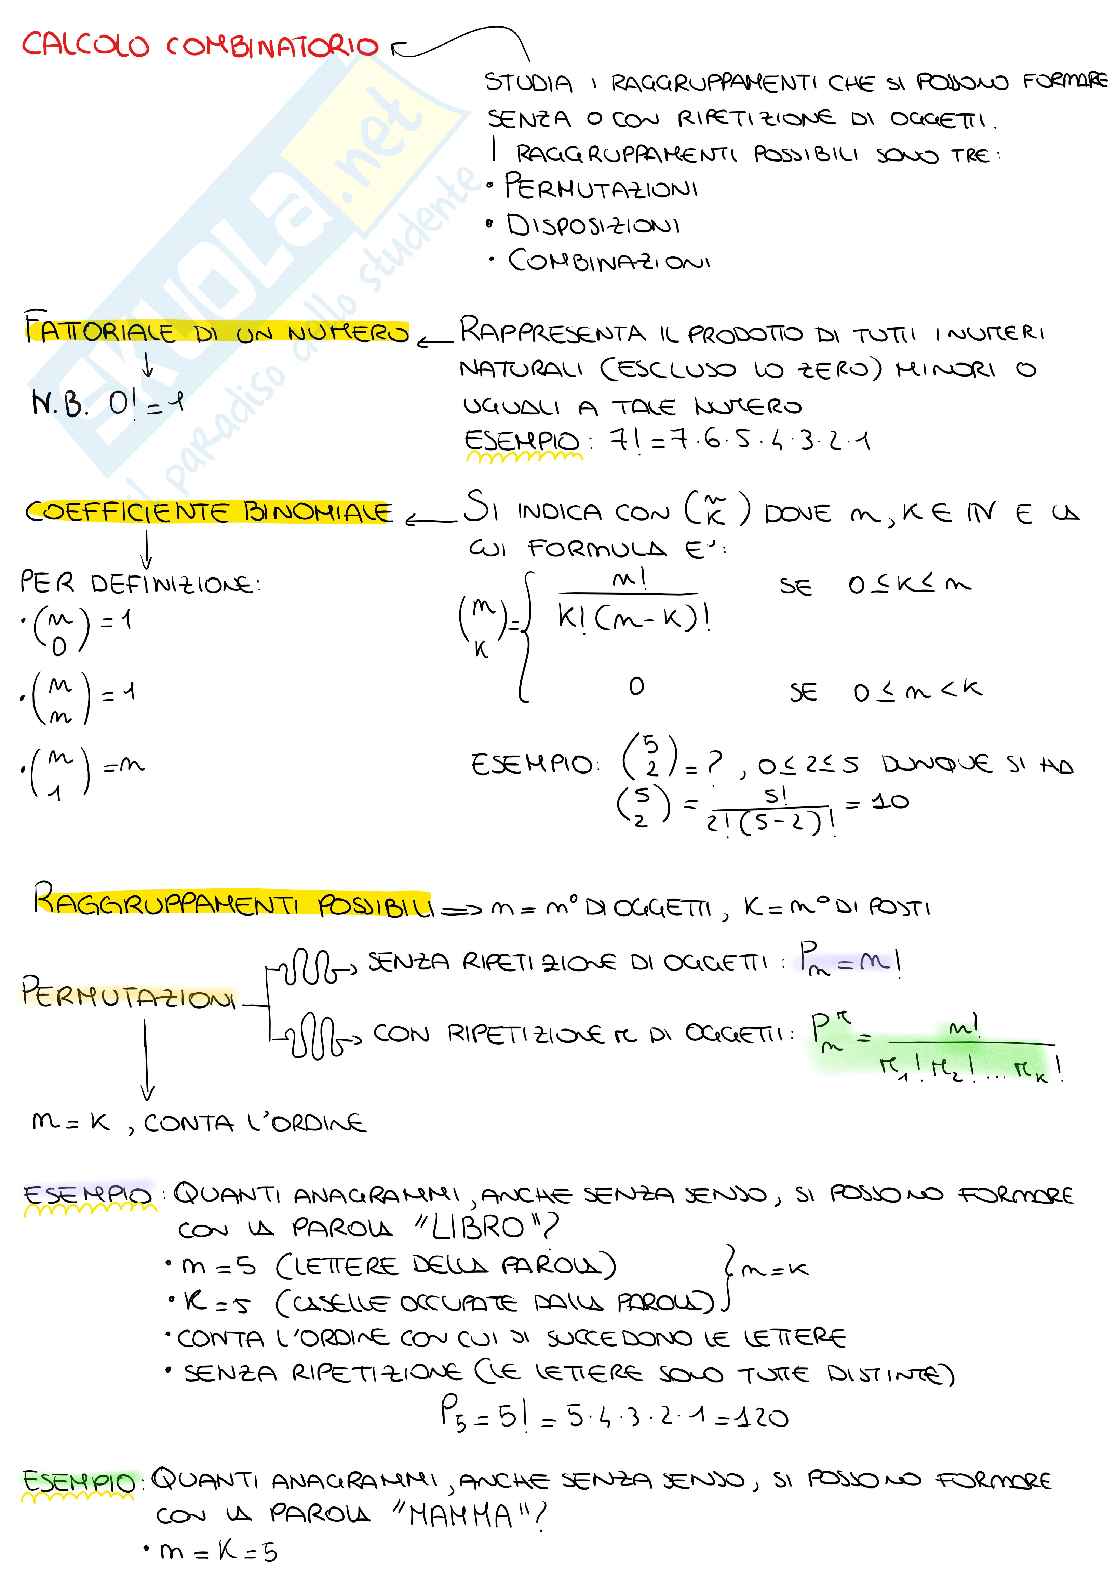 CALCOLO COMBINATORIO
STUDIA I RAGGRUPPAMENTI CHE SI POSSONO FORMARE
SENZA O CON RIPETIZIONE DI OGGETTI.
I RAGGRUPPAMENTI POSSIBILI SONO TRE:
• PERMUTAZIONI
• DISPOSIZIONI
• COMBINAZIONI
SKUOLA.net
il paradiso dello studente
FATTORIALE DI UN NUMERO ← RAPPRESENTA IL PRODOTTO DI TUTTI I NUMERI
NATURALI (ESCLUSO LO ZERO) MINORI O
UGUALI A TALE NUMERO
ESEMPIO: 7! = 7·6·5·4·3·2·1
N.B. 0! = 1
COEFFICIENTE BINOMIALE ← SI INDICA CON (n K) DOVE n, K ∈ IN E LA
CUI FORMULA E':
(n K) = { n! / K!(n-K)! SE 0 ≤ K ≤ n
0 SE 0 ≤ n < K
PER DEFINIZIONE:
• (n 0) = 1
• (n n) = 1
• (n 1) = n
ESEMPIO: (5 2) = ?, 0 ≤ 2 ≤ 5 DUNQUE SI HA
(5 2) = 5! / 2!(5-2)! = 10
RAGGRUPPAMENTI POSSIBILI => n = n° DI OGGETTI, K = n° DI POSTI
PERMUTAZIONI
SENZA RIPETIZIONE DI OGGETTI: Pn = n!
CON RIPETIZIONE r DI OGGETTI: Pn^r = n! / r1! r2! ... rK!
n = K, CONTA L'ORDINE
ESEMPIO: QUANTI ANAGRAMMI, ANCHE SENZA SENSO, SI POSSONO FORMARE
CON LA PAROLA "LIBRO"?
• n = 5 (LETTERE DELLA PAROLA)
• K = 5 (CASELLE OCCUPATE DALLA PAROLA) } n = K
• CONTA L'ORDINE CON CUI SI SUCCEDONO LE LETTERE
• SENZA RIPETIZIONE (LE LETTERE SONO TUTTE DISTINTE)
P5 = 5! = 5·4·3·2·1 = 120
ESEMPIO: QUANTI ANAGRAMMI, ANCHE SENZA SENSO, SI POSSONO FORMARE
CON LA PAROLA "MAMMA"?
• n = K = 5